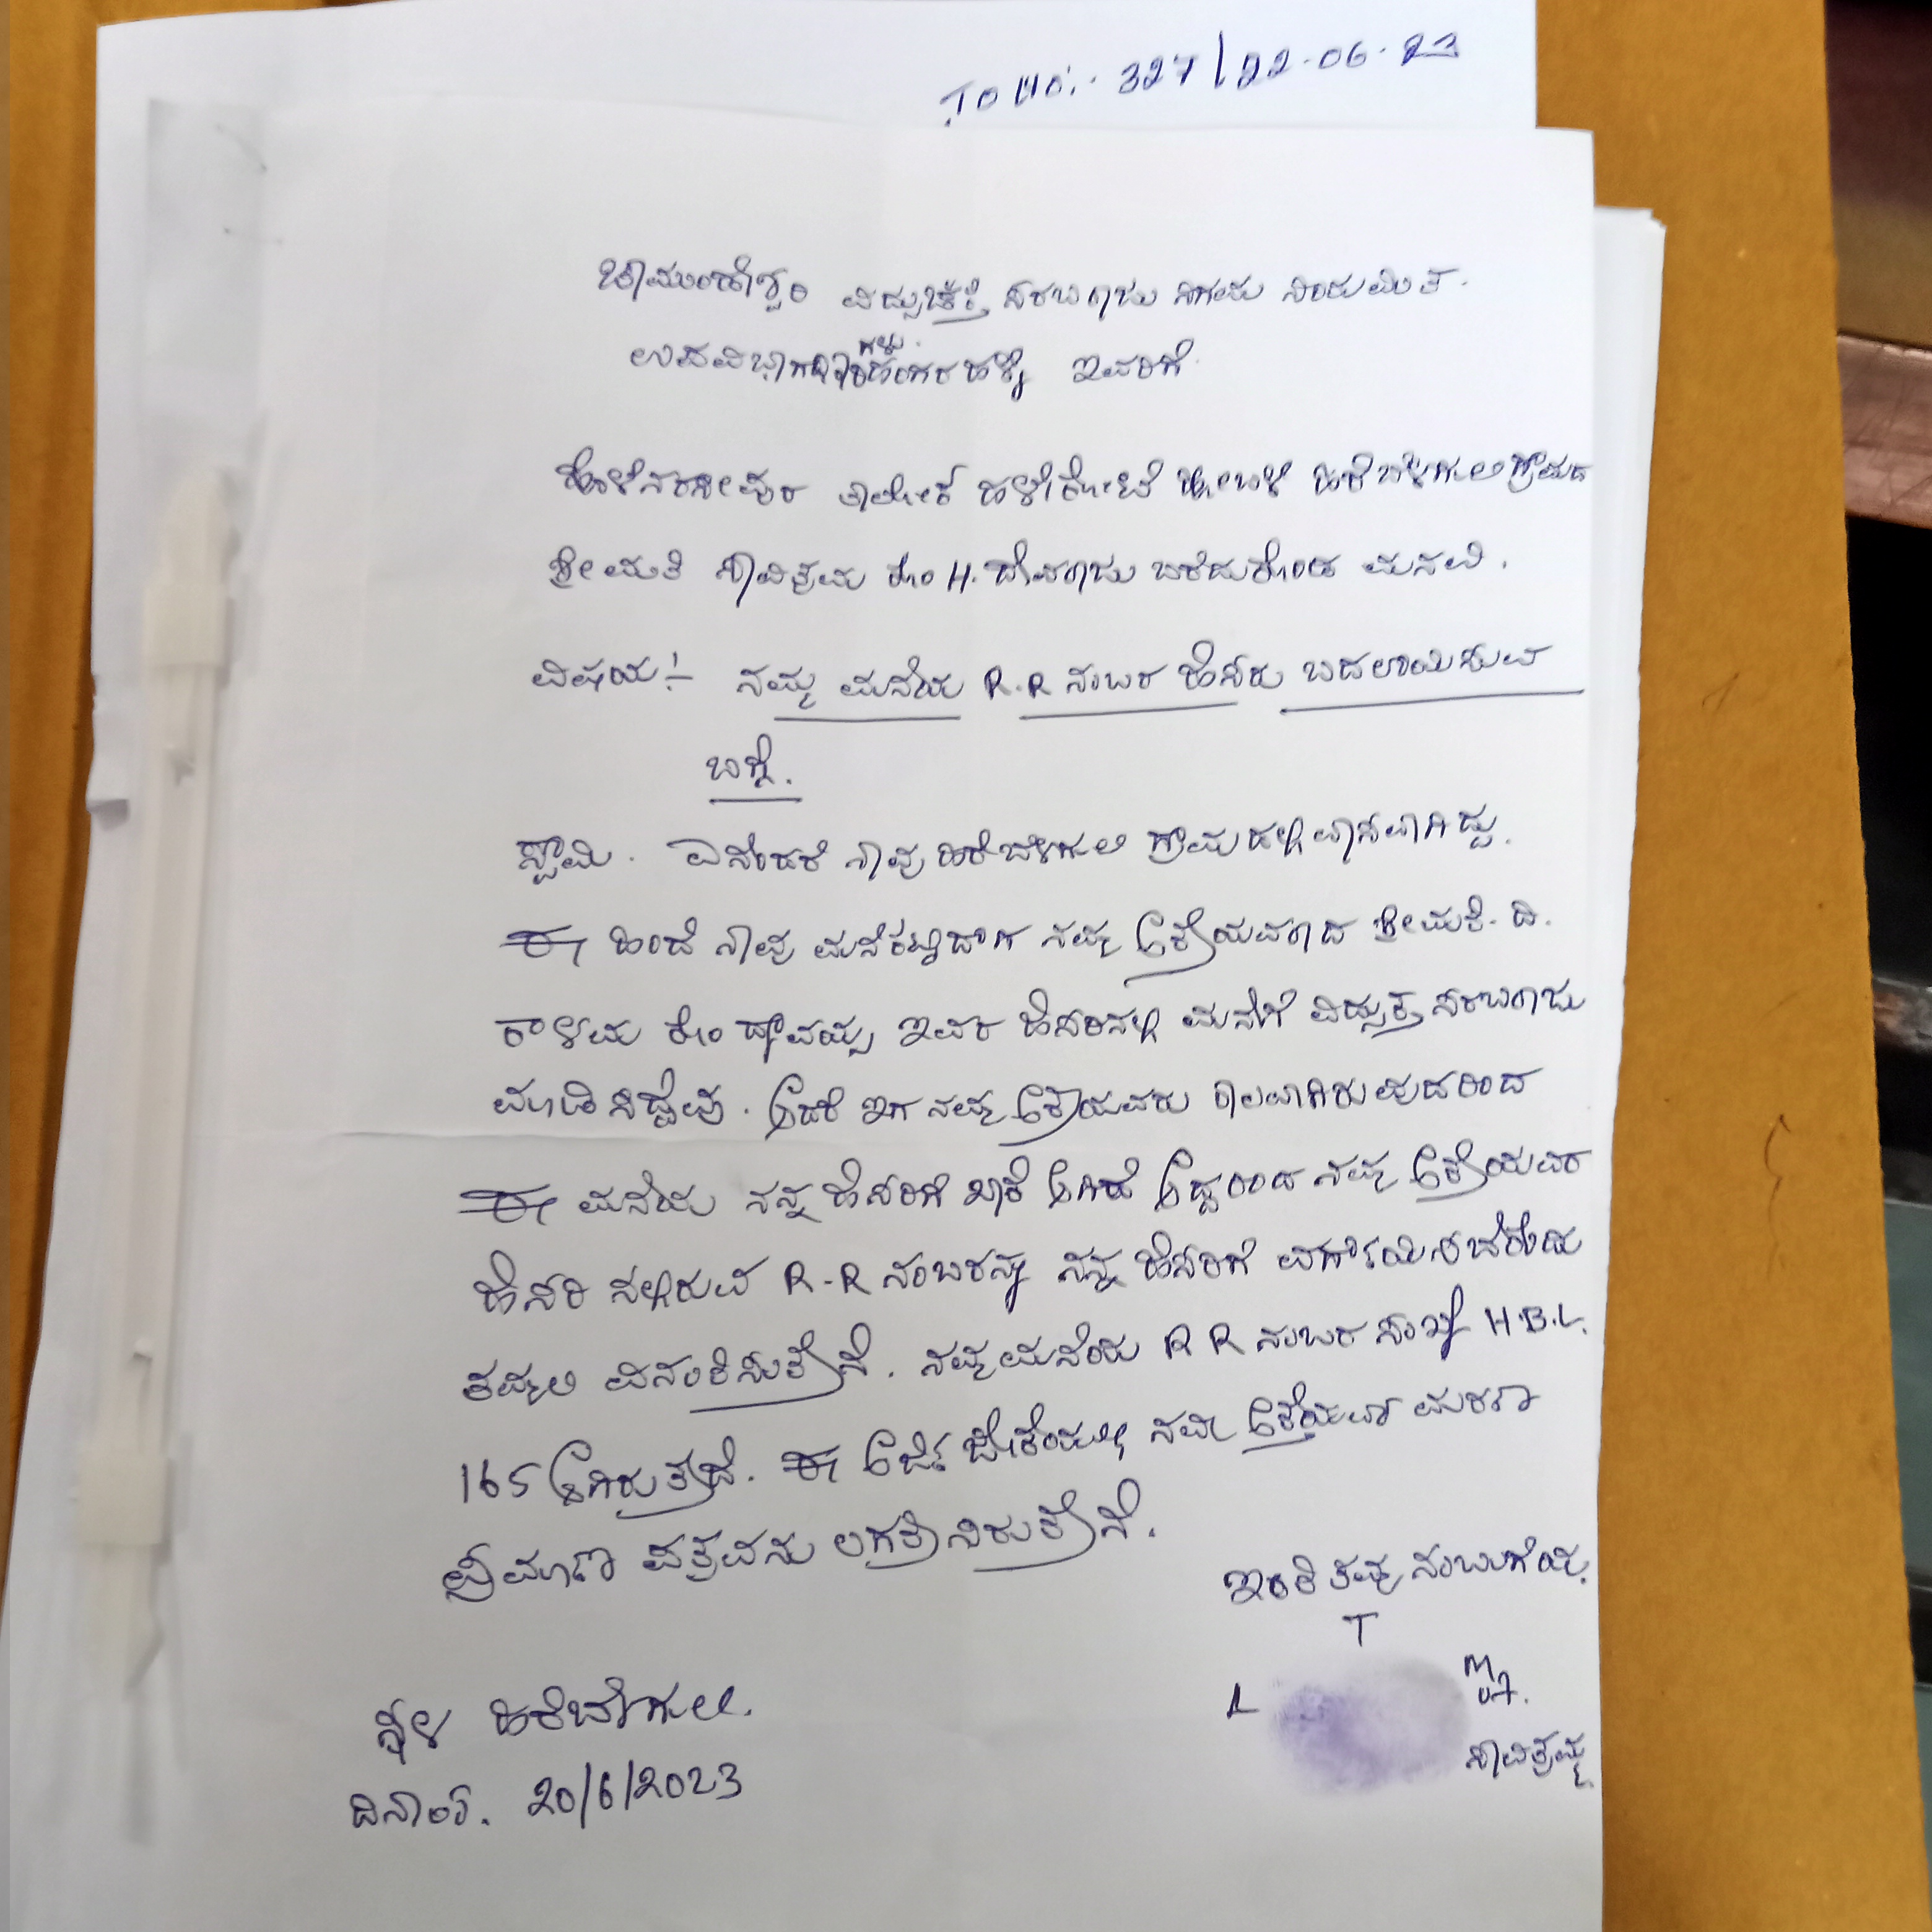 327/22-06-23
ಚಾಮುಂಡೇಶ್ವರಿ ವಿದ್ಯುಚ್ಛಕ್ತಿ ಸರಬರಾಜು ನಿಗಮ ನಿಯಮಿತ.
ಉಪವಿಭಾಗ ಇವರಿಗೆ.
ಹೊಳೆನರಸೀಪುರ ತಾಲೋಕ ಹಳೇಕೋಟೆ ಹೋಬಳಿ ಹಿರೆಬೆಳಗುಲಿ ಗ್ರಾಮದ
ಶ್ರೀಮತಿ ಸಾವಿತ್ರಮ ಕೋಂ H. ದೇವರಾಜು ಬರೆದುಕೊಂಡ ಮನವಿ.
ವಿಷಯ:- ನಮ್ಮ ಮನೆಯ R.R ನಂಬರ ಹೆಸರು ಬದಲಾಯಿಸುವ
ಬಗ್ಗೆ.
ಸ್ವಾಮಿ. ಏನೆಂದರೆ ನಾವು ಹಿರೆಬೆಳಗುಲಿ ಗ್ರಾಮದಲ್ಲಿ ವಾಸವಾಗಿದ್ದು.
ಈ ಹಿಂದೆ ನಾವು ಮನೆಕಟ್ಟಿದಾಗ ನಮ್ಮ ಅತ್ತೆಯವರಾದ ಶ್ರೀಮತಿ. ದಿ.
ಕಾಳಮ ಕೋಂ ದ್ಯಾವಯ್ಯ ಇವರ ಹೆಸರಿನಲ್ಲಿ ಮನೆಗೆ ವಿದ್ಯುತ್ತ ಸರಬರಾಜು
ಮಾಡಿಸಿದ್ದೆವು. ಆದರೆ ಇಗ ನಮ್ಮ ಅತ್ತೆಯವರು ಕಾಲವಾಗಿರುವುದರಿಂದ
ಈ ಮನೆಯ ನನ್ನ ಹೆಸರಿಗೆ ಖಾತೆ ಆಗಿದೆ ಆದ್ದರಿಂದ ನಮ್ಮ ಅತ್ತೆಯವರ
ಹೆಸರಿನಲ್ಲಿರುವ R-R ನಂಬರನ್ನು ನನ್ನ ಹೆಸರಿಗೆ ವರ್ಗಾಯಿಸಬೇಕೆಂದು
ತಮ್ಮಲಿ ವಿನಂತಿಸುತ್ತೇನೆ. ನಮ್ಮ ಮನೆಯ R R ನಂಬರ ಸಂಖ್ಯೆ H.B.L.
165 ಆಗಿರುತ್ತದೆ. ಈ ಅರ್ಜಿ ಜೊತೆಯಲ್ಲಿ ನಮ್ಮ ಅತ್ತೆಯವರ ಮರಣ
ಪ್ರಮಾಣ ಪತ್ರವನು ಲಗತ್ತಿಸಿರುತ್ತೇನೆ.
ಇಂತಿ ತಮ್ಮ ನಂಬುಗೆಯ.
T
L
ಸಾವಿತ್ರಮ್ಮ
ಸ್ಥಳ ಹಿರೆಬೆಳಗುಲಿ.
ದಿನಾಂಕ. 20/6/2023